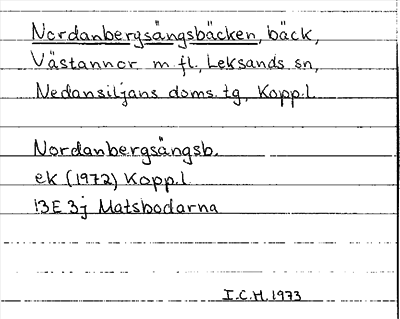 Nordanbergsängsbäcken, bäck,
Västannor m. fl., Leksands sn,
Nedansiljans doms. tg, Kopp.l.
Nordanbergsängsb.
ek (1972) Kopp.l
13E 3j Matsbodarna
I.C.H. 1973